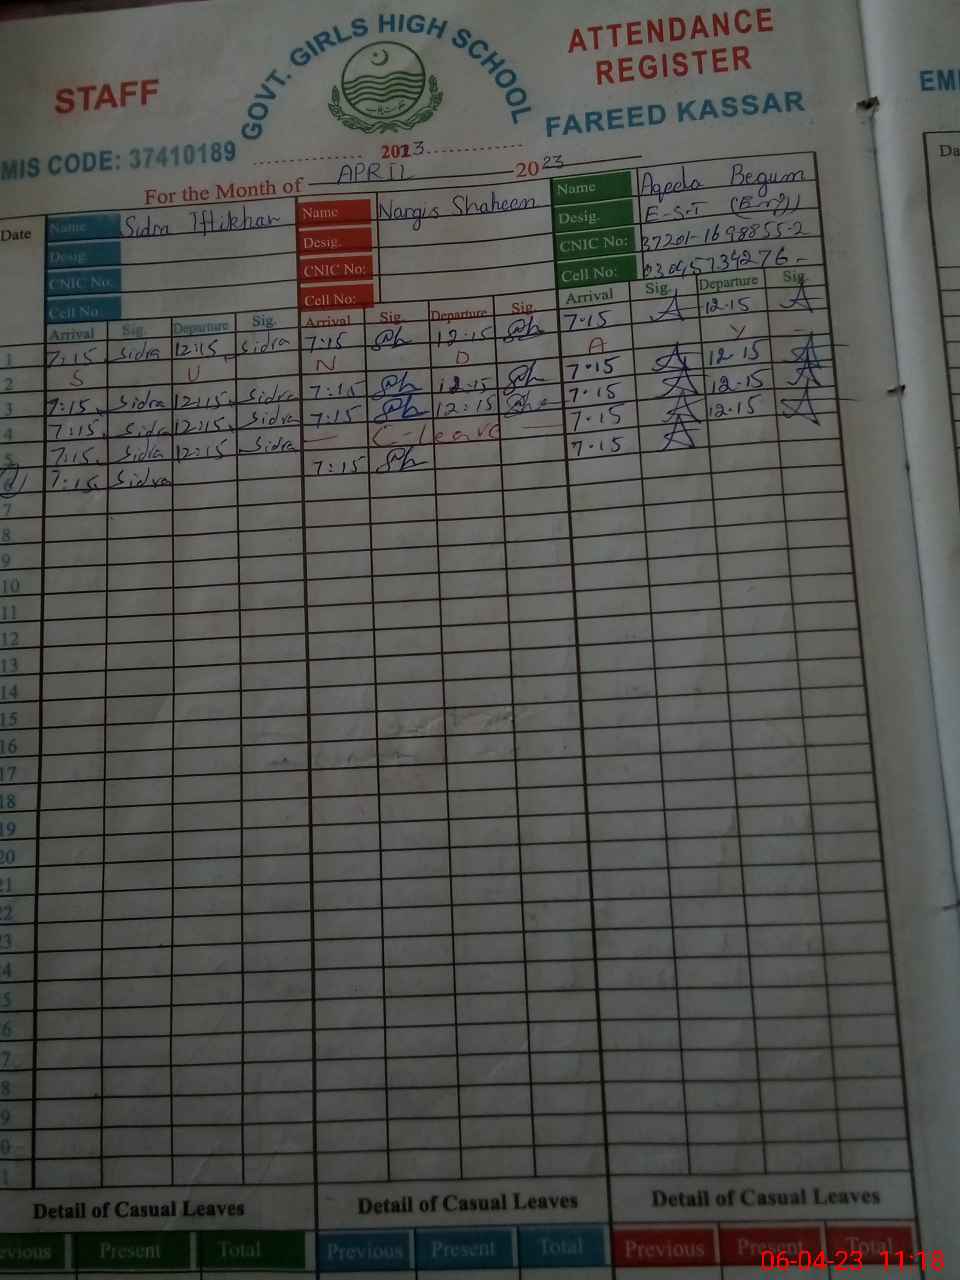 STAFF
GOVT. GIRLS HIGH SCHOOL
ATTENDANCE
REGISTER
FAREED KASSAR
MIS CODE: 37410189
2023
For the Month of APRIL 2023
Date
Name Sidra Iftikhar Name Nargis Shaheen Name Aqeela Begum
Desig. Desig. Desig. E-S-T
CNIC No. CNIC No: CNIC No: 37201-1698855-2
Cell No: Cell No: Cell No: 03045734276
Arrival Sig. Departure Sig. Arrival Sig. Departure Sig. Arrival Sig. Departure Sig.
1 7:15 Sidra 12:15 Sidra 7:15 Sh 12:15 Sh 7.15 A 12.15 A
2 S U N D A Y
3 7:15 Sidra 12:15 Sidra 7:15 Sh 12:15 Sh 7.15 A 12.15 A
4 7:15 Sidra 12:15 Sidra 7:15 Sh 12:15 Sh 7.15 A 12.15 A
5 7:15 Sidra 12:15 Sidra C-leave 7.15 A 12.15 A
6 7:15 Sidra 7:15 Sh 7.15 A
7
8
9
10
11
12
13
14
15
16
17
18
19
20
21
22
23
4
5
6
7
8
9
0
1
Detail of Casual Leaves Detail of Casual Leaves Detail of Casual Leaves
evious Present Total Previous Present Total Previous Present Total
06-04-23 11:18
EM
Da